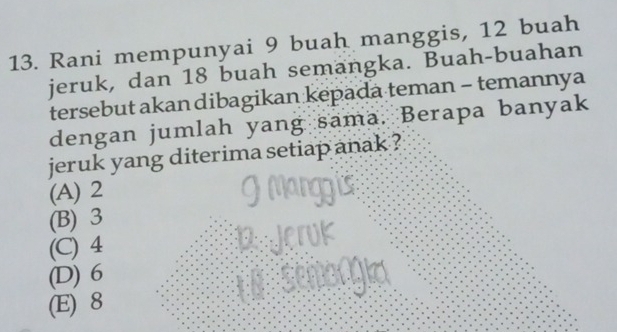 13. Rani mempunyai 9 buah manggis, 12 buah
jeruk, dan 18 buah semangka. Buah-buahan
tersebut akan dibagikan kepada teman – temannya
dengan jumlah yang sama. Berapa banyak
jeruk yang diterima setiap anak?
(A) 2
(B) 3
(C) 4
(D) 6
(E) 8
9 manggis
12 jeruk
18 semangka